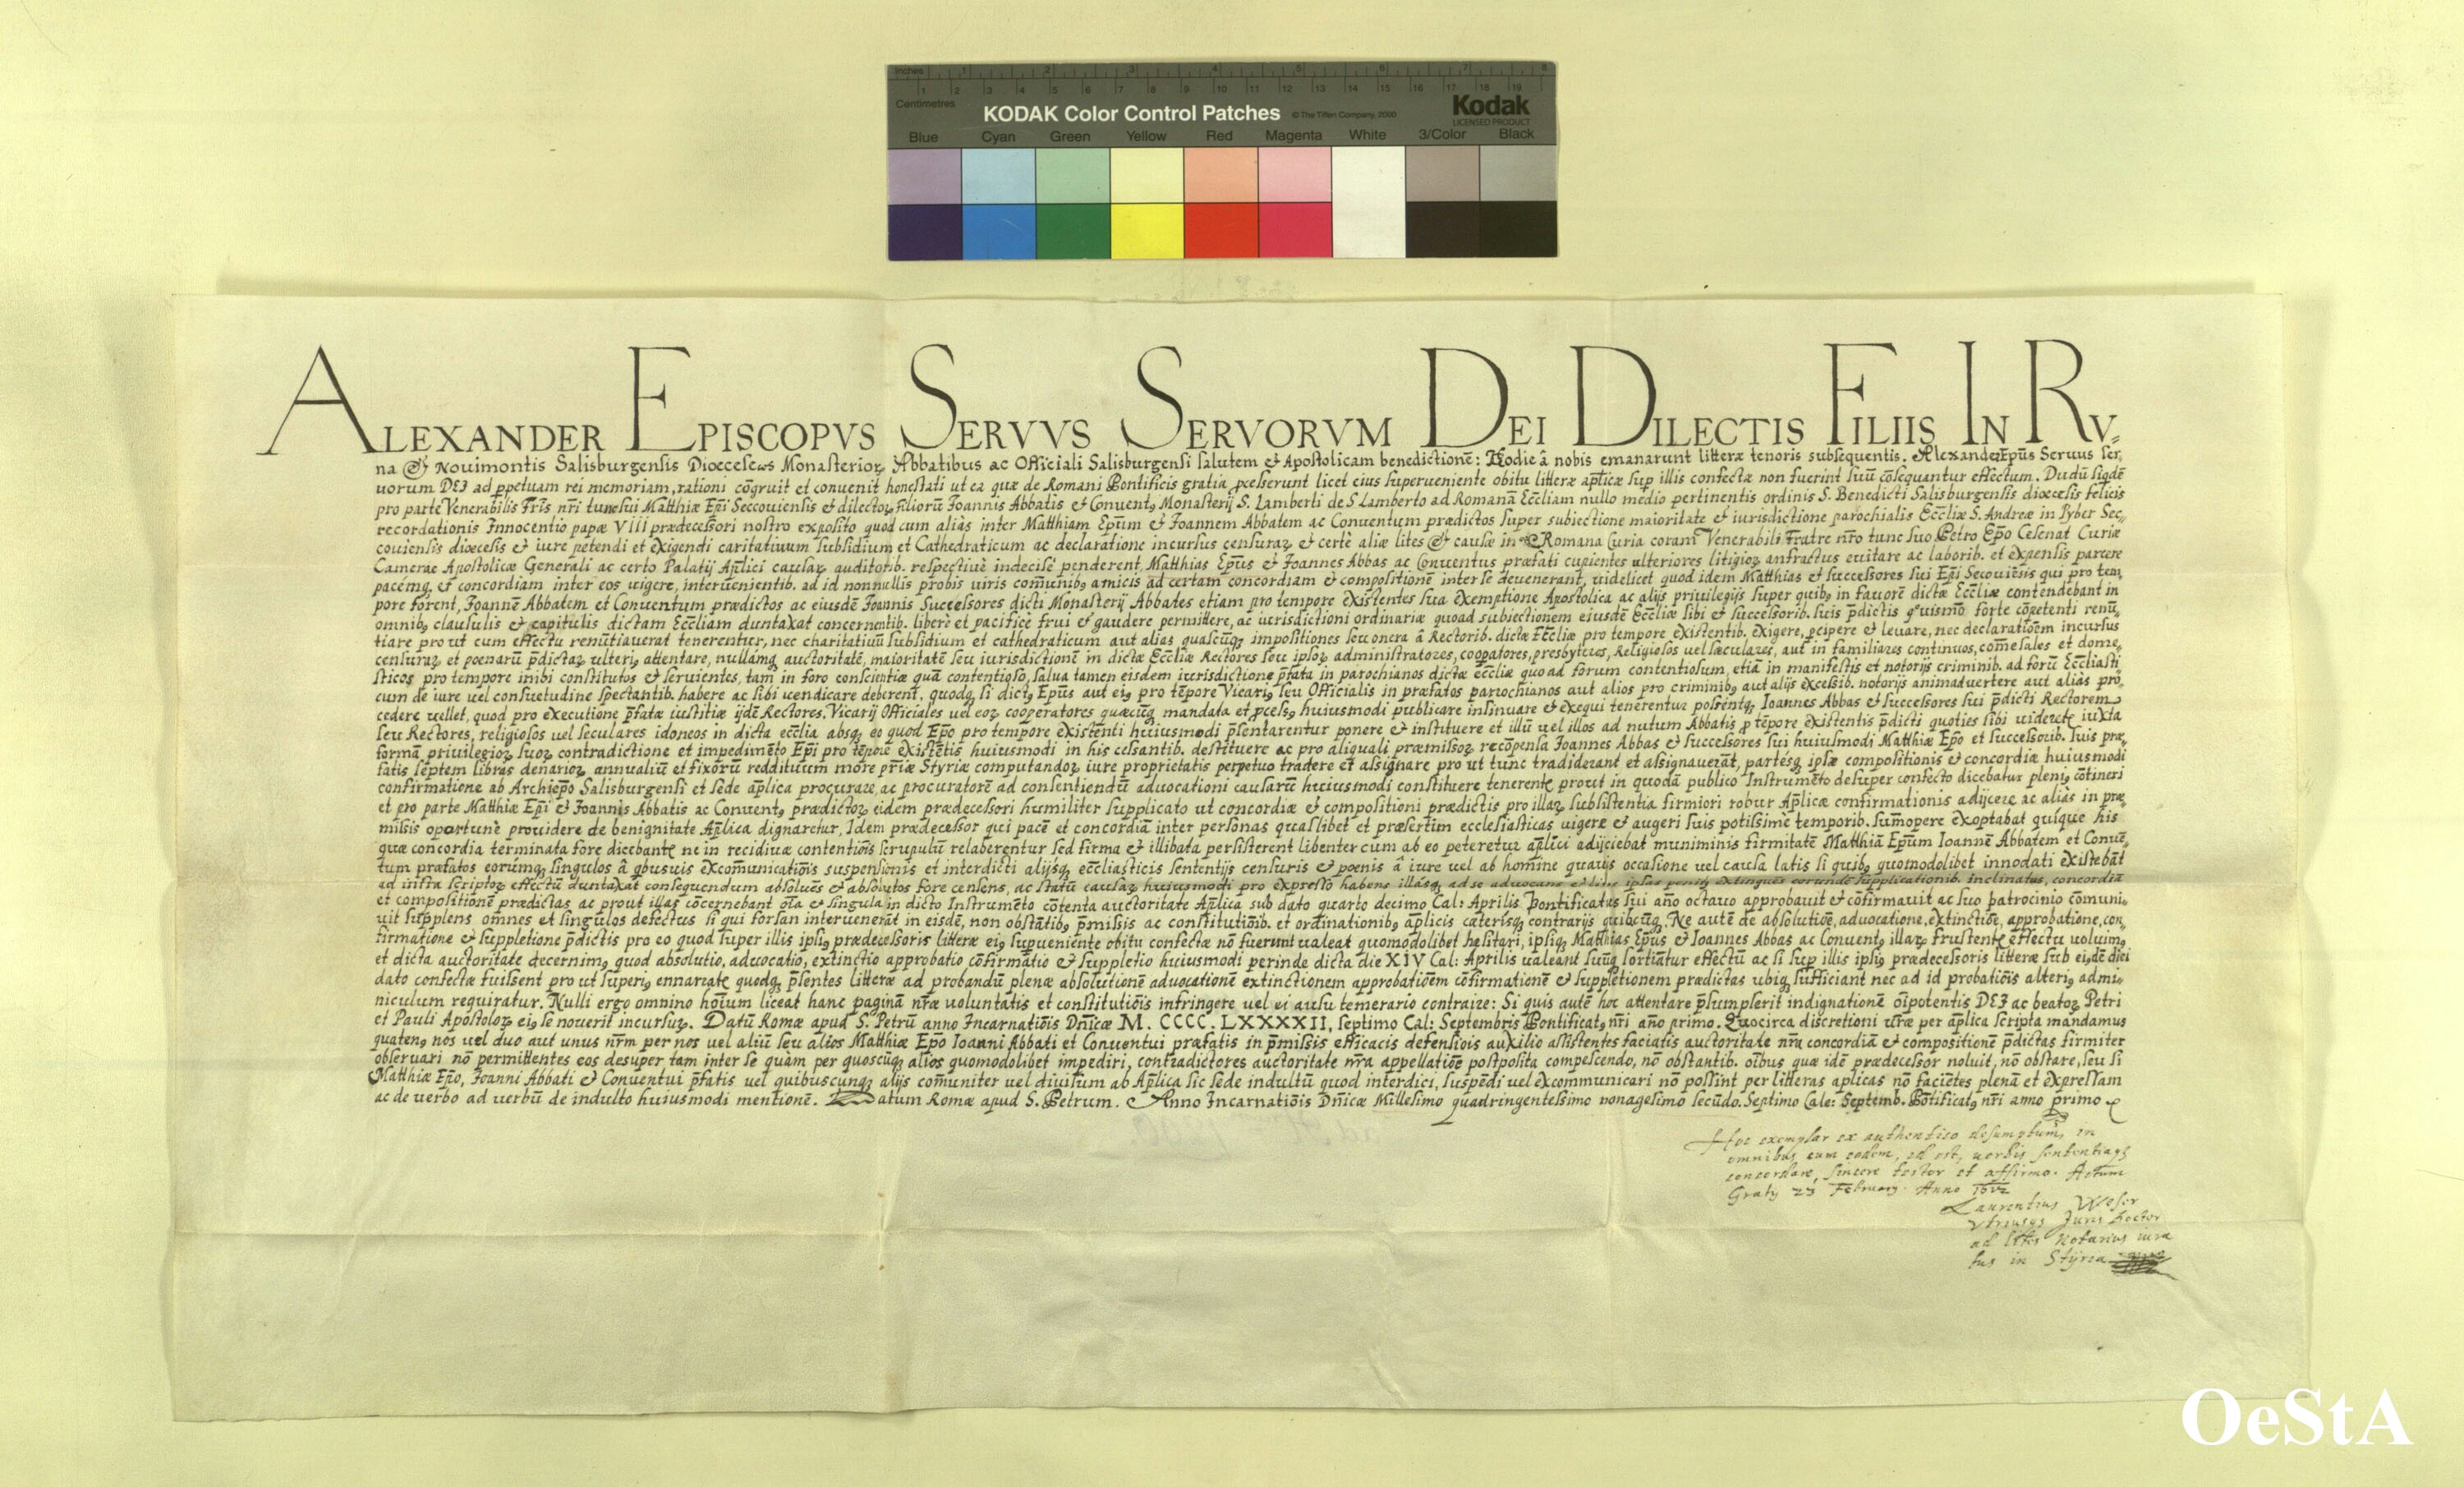 Inches 1 2 3 4 5 6 7 8
Centimetres 1 2 3 4 5 6 7 8 9 10 11 12 13 14 15 16 17 18 19
KODAK Color Control Patches © The Tiffen Company, 2000 Kodak
LICENSED PRODUCT
Blue Cyan Green Yellow Red Magenta White 3/Color Black
ALEXANDER EPISCOPVS SERVVS SERVORVM DEI DILECTIS FILIIS IN RV=
na & Nouimontis Salisburgensis Diœceseωs Monasterioꝝ Abbatibus ac Officiali Salisburgensi salutem & Apostolicam benedictionē: Hodie â nobis emanarunt litteræ tenoris subsequentis. Alexander Ep̄us Seruus ser,
uorum DEI ad ꝑpetuam rei memoriam, rationi cōgruit et conuenit honestati ut ea quæ de Romani Pontificis gratia ꝓcesserunt licet eius superueniente obitu litteræ apl̄icæ sup illis confectæ non fuerint suū cōsequantur effectum. Dudū siqdē
pro parte Venerabilis Fr̄is nr̄i tunc sui Matthiæ Ep̄i Seccouiensis et dilectoꝝ filiorū Joannis Abbatis & Conuentꝰ Monasterij S. Lamberti de S Lamberto ad Romanā Eccl̄iam nullo medio pertinentis ordinis S. Benedicti Salisburgensis diœcesis felicis
recordationis Innocentio papæ VIII prædecessori nostro exposito quod cum aliàs inter Matthiam Ep̄um & Joannem Abbatem ac Conuentum prædictos super subiectione maioritate & iurisdictione parochialis Eccl̄iæ S. Andreæ in Pyber Sec,
couiensis diœcesis & iure petendi et exigendi caritatiuum subsidium et Cathedraticum ac declaratione incursus censuraꝝ & certè aliæ lites & causæ in Romana Curia coram Venerabili Fratre nr̄o tunc suo Petro Ep̄o Cesenat Curiæ
Cameræ Apostolicæ Generali ac certo Palatij Apl̄ici causaꝝ auditorib. respectiuè indecisè penderent, Matthias Ep̄us & Joannes Abbas ac Conuentus præfati cupientes ulteriores litigioꝝ anfractus euitare ac laborib. et expensis parcere
pacémꝗ et concordiam inter eos uigere, interuenientib. ad id nonnullis probis uiris com̄unibꝰ amicis ad certam concordiam & compositionē inter se deuenerant, uidelicet quod idem Matthias et successores sui Ep̄i Secouiēsis qui pro tem,
pore forent, Joannē Abbatem et Conuentum prædictos ac eiusdē Joannis Successores dicti Monasterij Abbates etiam pro tempore existentes sua exemptione Apostolica ac alijs priuilegijs super quibꝰ in fauorē dictæ Eccl̄iæ contendebant in
omnibꝰ clausulis & capitulis dictam Eccl̄iam duntaxat concernentib. liberè et pacificè frui et gaudere permittere, ac iurisdictioni ordinariæ quoad subiectionem eiusdē Eccl̄iæ sibi et successorib. suis p̄dictis forte cōpetenti renū,
tiare pro ut cum effectu renūtiauerat tenerentur, nec charitatiuū subsidium et cathedraticum aut alias quascūꝗ impositiones seu onera â Rectorib. dictæ Eccl̄iæ pro tempore existentib. exigere, ꝑcipere & leuare, nec declaratiōem incursus
censuraꝝ et poenarū p̄dictaꝝ ulteriꝰ attentare, nullamꝗ auctoritatē, maioritatē seu iurisdictionē in dictæ Eccl̄iæ Rectores seu ipsoꝝ administratores, coopatores, presbyteros, Religiosos uel sæculares, aut in familiares continuos, com̄esales et dome,
sticos pro tempore inibi constitutos & seruientes, tam in foro conscientiæ quā contentioso, salua tamen eisdem iurisdictione p̄fata in parochianos dictæ eccl̄iæ quo ad forum contentiosum, etiā in manifestis et notorijs criminib. ad forū Eccl̄iasti
cum de iure uel consuetudine spectantib. habere ac sibi uendicare deberent, quodꝗ si dictꝰ Ep̄us aut eiꝰ pro tēpore Vicariꝰ seu Officialis in præfatos parochianos aut alios pro criminibꝰ aut alijs excessib. notorijs animaduertere aut aliàs pro,
cedere uellet, quod pro executione p̄fatæ iustitiæ ijdē Rectores, Vicarij Officiales uel eoꝝ cooperatores quæcūꝗ mandata et ꝓcessꝰ huiusmodi publicare insinuare & exequi tenerentur possentꝗ Ioannes Abbas & successores sui p̄dicti Rectorem
seu Rectores, religiosos uel seculares idoneos in dicta eccl̄ia absꝗ eo quod Ep̄o pro tempore existenti huiusmodi p̄sentarentur ponere & instituere et illū uel illos ad nutum Abbatis ꝓ tēpore existentis p̄dicti quoties sibi uideretꝰ iuxta
formā priuilegioꝝ suoꝝ contradictione et impedimēto Ep̄i pro tēpore existētis huiusmodi in his cessantib. destituere ac pro aliquali præmissoꝝ recōpensa Joannes Abbas & successores sui huiusmodi Matthiæ Ep̄o et successorib. suis præ,
fatis septem libras denarioꝝ annualiū et fixorū reddituum more pr̄iæ Styriæ computandoꝝ iure proprietatis perpetuo tradere et assignare pro ut tunc tradiderant et assignauerāt, partésꝗ ipsæ compositionis & concordiæ huiusmodi
confirmatione ab Archiep̄o Salisburgensi et sede ap̄lica procurare, ac procuratorē ad consentiendū aduocationi causarū huiusmodi constituere tenerentꝰ prout in quodā publico Instrumēto desuper confecto dicebatur pleniꝰ cōtineri
et pro parte Matthiæ Ep̄i & Joannis Abbatis ac Conuentꝰ prædictoꝝ eidem prædecessori humiliter supplicato ut concordiæ & compositioni prædictis pro illaꝝ subsistentia firmiori robur Apl̄icæ confirmationis adijcere ac aliàs in præ,
missis oportunè prouidere de benignitate Apl̄ica dignaretur, Idem prædecessor qui pacē et concordiā inter personas quaslibet et præsertim ecclesiasticas uigere & augeri suis potissimè temporib. sum̄opere exoptabat quique his
quæ concordia terminata fore dicebantꝰ ne in recidiuæ contentiōis scrupulū relaberentur sed firma & illibata persisterent libenter cum ab eo peteretur apl̄ici adijciebat muniminis firmitatē Matthiā Ep̄um Ioannē Abbatem et Conuē,
tum præfatos eorúmꝗ singulos â qbusuis excom̄unicatiōis suspensionis et interdicti alijsꝗ eccl̄iasticis sententijs censuris & poenis â iure uel ab homine quauis occasione uel causa latis si quibꝰ quomodolibet innodati existebāt
ad infra scriptoꝝ effectū duntaxat consequendum absoluēs & absolutos fore censens, ac statū causaꝝ huiusmodi pro expresso habens illásꝗ ad se aduocans et lites ipsas penitꝰ extinguēs eorundē supplicationib. inclinatus, concordiā
et compositionē prædictas ac prout illas cōcernebant oīa & singula in dicto Instrumēto cōtenta auctoritate Apl̄ica sub dato quarto decimo Cal: Aprilis Pontificatus sui año octauo approbauit et cōfirmauit ac suo patrocinio cōmuni,
uit supplens omnes et singulos defectus si qui forsan interuenerāt in eisdē, non obstātibꝰ p̄missis ac constitutiōib. et ordinationibꝰ ap̄licis cæterisꝗ contrarijs quibcūꝗ. Ne autē de absolutiōe, aduocatione, extinctiōe, approbatione, con,
firmatione & suppletione p̄dictis pro eo quod super illis ipsiꝰ prædecessoris litteræ eiꝰ supueniente obitu confectæ nō fuerunt ualeat quomodolibet hæsitari, ipsiꝗ Matthias Ep̄us & Ioannes Abbas ac Conuentꝰ illaꝝ frustentꝰ effectu uoluimꝰ
et dicta auctoritate decernimꝰ quod absolutio, aduocatio, extinctio approbatio cōfirmatio & suppletio huiusmodi perinde dicta die XIV Cal: Aprilis ualeant suūꝗ sortiātur effectū ac si sup illis ipsiꝰ prædecessoris litteræ sub eiꝰdē diei
dato confectæ fuissent pro ut superiꝰ ennaratꝰ quodꝗ p̄sentes litteræ ad probandū plenæ absolutionē aduocationē extinctionem approbatiōem cōfirmationē & suppletionem prædictas ubiꝗ sufficiant nec ad id probatiōis alteriꝰ admi,
niculum requiratur. Nulli ergo omnino hoīum liceat hanc paginā nr̄æ uoluntatis et constitutiōis infringere uel ei ausu temerario contraire: Si quis autē hoc attentare p̄sumpserit indignationē oīpotentis DEI ac beatoꝝ Petri
et Pauli Apostoloꝝ eiꝰ se nouerit incursuꝝ. Datū Romæ apud S. Petrū anno Incarnatiōis Dn̄icæ M. CCCC. LXXXXII, septimo Cal: Septembris Pontificatꝰ nr̄i año primo. Quocirca discretioni ur̄æ per ap̄lica scripta mandamus
quatenꝰ uos uel duo aut unus ur̄m per uos uel aliū seu alios Matthiæ Ep̄o Ioanni Abbati et Conuentui præfatis in p̄missis efficacis defensiōis auxilio assistentes faciatis auctoritate nr̄a concordiā & compositionē p̄dictas firmiter
obseruari nō permittentes eos desuper tam inter se quàm per quoscūꝗ alios quomodolibet impediri, contradictores auctoritate nr̄a appellatiōe postposita compescendo, nō obstantib. oībus quæ idē prædecessor noluit, nō obstare, seu si
Matthiæ Ep̄o, Joanni Abbati & Conuentui p̄fatis uel quibuscunꝗ alijs com̄uniter uel diuisum ab Ap̄lica sic sede indultū quod interdici, suspēdi uel excommunicari nō possint per litteras aplicas nō faciētes plenā et expressam
ac de uerbo ad uerbū de indulto huiusmodi mentionē. Datum Romæ apud S. Petrum. Anno Incarnatiōis Dn̄icæ Millesimo quadringentesimo nonagesimo secūdo. Septimo Cale: Septemb. Pōtificatꝰ nr̄i anno primo
Hoc exemplar ex authentico desumptum, in
omnibus cum eodem, id est, uerbis sententiisꝗ
concordare, sincere testor et affirmo. Actum
Gratij 23 February. Anno
Laurentius Weser
Vtriusꝗ Juris Doctor
ad lites Notarius iura
tus in Styria
OeStA